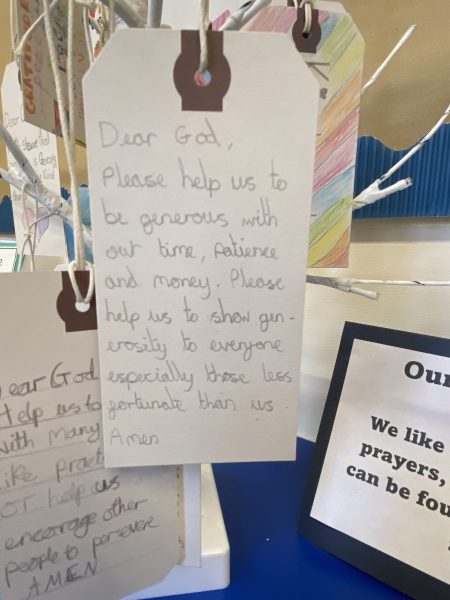 Dear God,
Please help us to
be generous with
our time, patience
and money. Please
help us to show gen-
erosity to everyone
especially those less
fortunate than us.
Amen
Dear God
Help us to
with many
like
help us
encourage other
people to persevere
AMEN
Our
We like
prayers,
can be fou